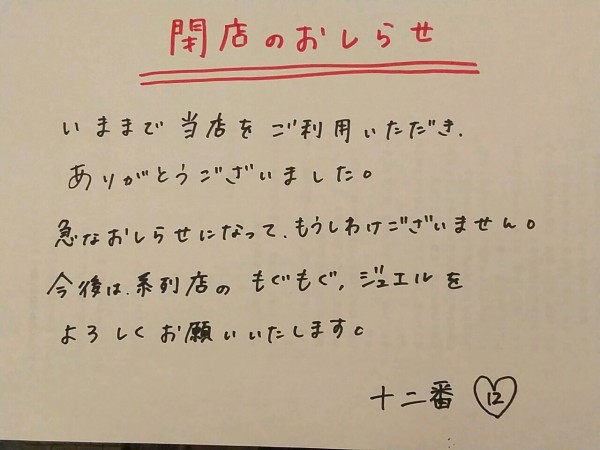 閉店のおしらせ
いままで当店をご利用いただき、
ありがとうございました。
急なおしらせになって、もうしわけございません。
今後は、系列店のもぐもぐ,ジュエルを
よろしくお願いいたします。
十二番 12